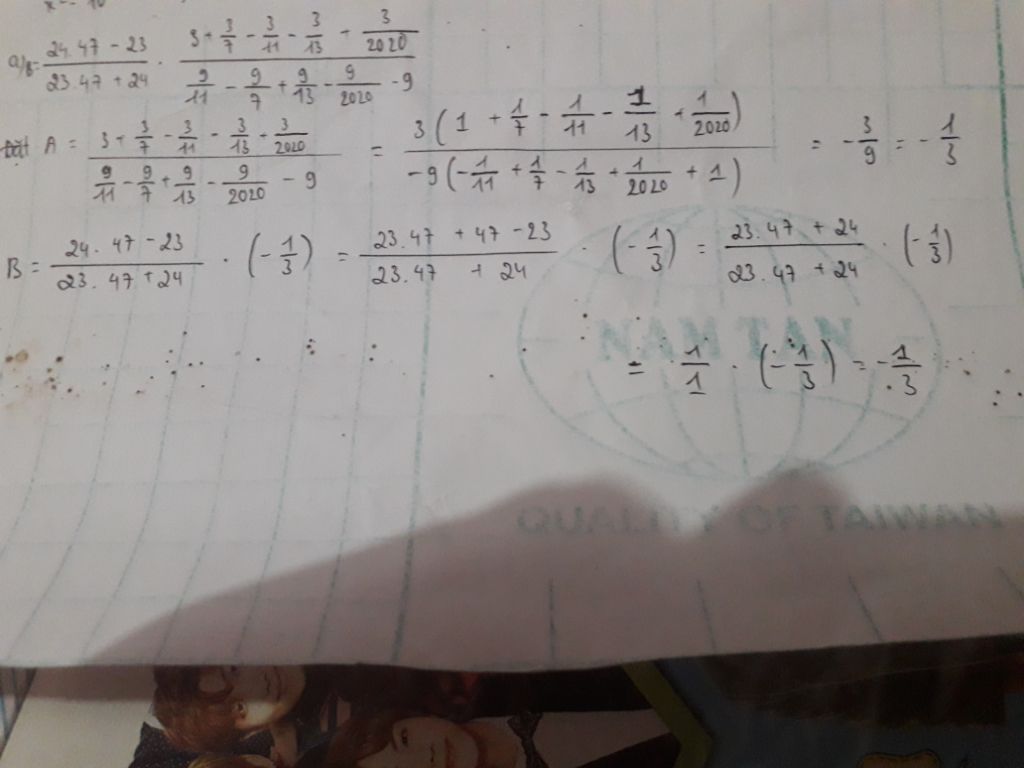 a/ B = \frac{24.47 - 23}{23.47 + 24} . \frac{3 + \frac{3}{7} - \frac{3}{11} - \frac{3}{13} + \frac{3}{2020}}{\frac{9}{11} - \frac{9}{7} + \frac{9}{13} - \frac{9}{2020} - 9}
Đặt A = \frac{3 + \frac{3}{7} - \frac{3}{11} - \frac{3}{13} + \frac{3}{2020}}{\frac{9}{11} - \frac{9}{7} + \frac{9}{13} - \frac{9}{2020} - 9} = \frac{3(1 + \frac{1}{7} - \frac{1}{11} - \frac{1}{13} + \frac{1}{2020})}{-9(-\frac{1}{11} + \frac{1}{7} - \frac{1}{13} + \frac{1}{2020} + 1)} = -\frac{3}{9} = -\frac{1}{3}
B = \frac{24.47 - 23}{23.47 + 24} . (-\frac{1}{3}) = \frac{23.47 + 47 - 23}{23.47 + 24} . (-\frac{1}{3}) = \frac{23.47 + 24}{23.47 + 24} . (-\frac{1}{3})
NAM TAN
= \frac{1}{1} . (-\frac{1}{3}) = -\frac{1}{3}
QUALITY OF TAIWAN